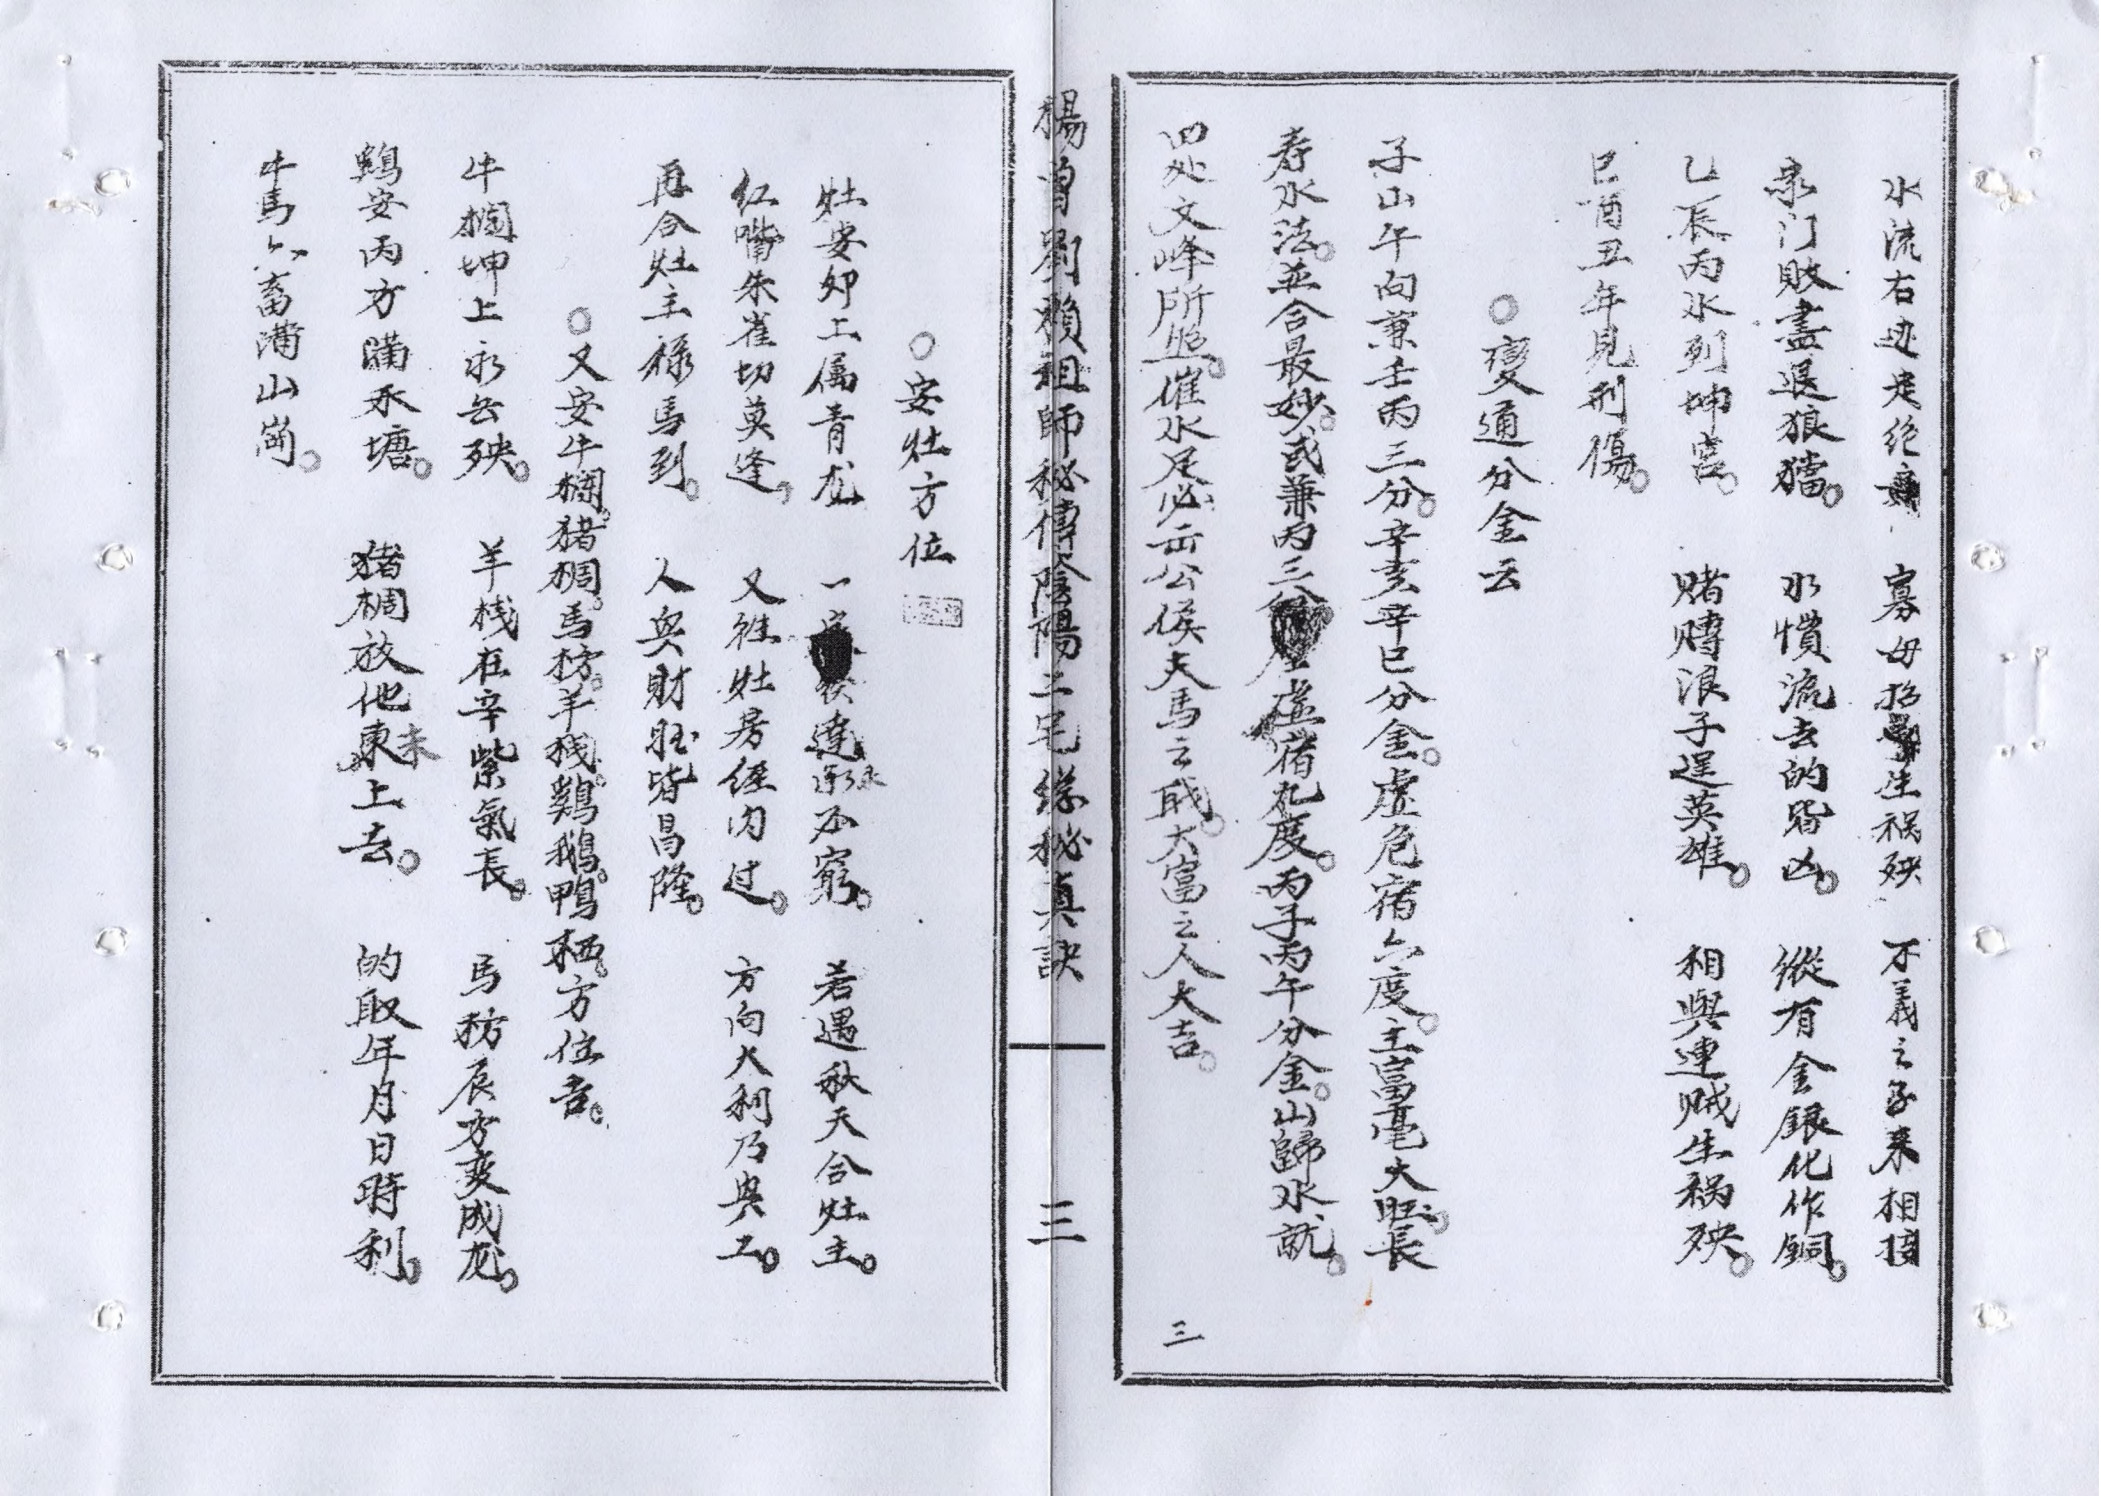 水流右边走绝 寡母招 生祸殃 不義之子来相接
家门敗盡退狼猪。 水慣流去的皆凶。 縱有金銀化作銅。
乙辰丙水到坤宫。 赌賻浪子逞英雄。 相與連贼生祸殃。
巳酉丑年見刑傷。
○變通分金云
子山午向兼壬丙三分。辛亥辛巳分金。虚危宿六度。主富毫大旺。長
寿水法。並合最妙。或兼丙三分 虚宿九度。丙子丙午分金。山歸水就。
四处文峰所照。催水足必出公侯夫馬之戝。大富之人大吉。
三
楊曾劉賴祖師秘傳陰陽二宅終秘真訣
三
○安灶方位
灶安卯上属青龙 一家 發達 不窮。 若遇秋天合灶主。
红嘴朱雀切莫逢。 又徃灶房經内过。 方向大利乃興工。
再合灶主禄馬到。 人興財旺皆昌隆。
○又安牛欄。猪椆。馬枋。羊栈。鷄鵝。鴨栖。方位吉。
牛椆坤上永无殃。 羊栈在辛紫氣長。 馬枋辰方变成龙。
鷄安丙方满禾塘。 猪椆放他東未上去。 的取年月日時利。
牛馬六畜满山崗。